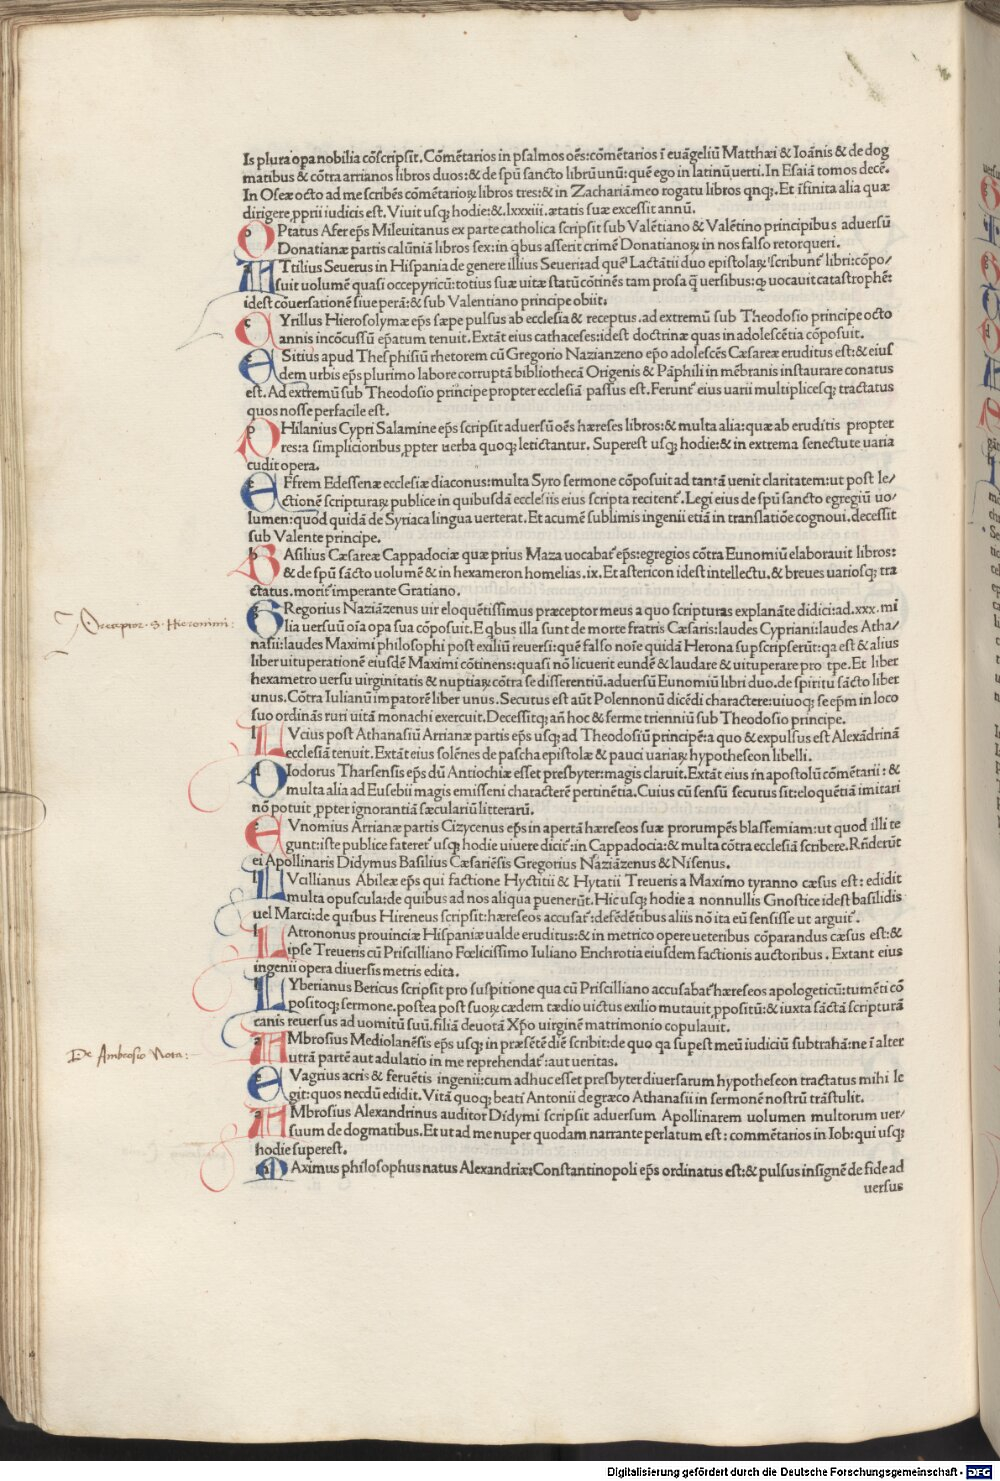 Is plura opa nobilia cõscripsit. Cõmẽtarios in psalmos oẽs: cõmẽtarios ĩ euãgeliũ Matthæi & Ioãnis & de dog
matibus & cõtra arrianos libros duos: & de spũ sancto librũ unũ: quẽ ego in latinũ uerti. In Esaiã tomos decẽ.
In Osea octo ad me scribẽs cõmẽtarioꝝ libros tres: & in Zachariã meo rogatu libros qnqꝫ. Et ĩfinita alia quæ
dirigere ꝓprii iudicis est. Viuit usqꝫ hodie: & .lxxxiii. ætatis suæ excessit annũ.
OPtatus Afer ep̃s Mileuitanus ex parte catholica scripsit sub Valẽtiano & Valẽtino principibus aduersũ
Donatianæ partis calũniã libros sex: in qbus asserit crimẽ Donatianoꝝ in nos falso retorqueri.
ATtilius Seuerus in Hispania de genere illius Seueri: ad quẽ Lactãtii duo epistolaꝝ scribunt᷑ libri: cõpo/
suit uolumẽ quasi occepyricũ: totius suæ uitæ statũ cõtinẽs tam prosa q̃ uersibus: qd̕ uocauit catastrophẽ:
idest cõuersationẽ siue perã: & sub Valentiano principe obiit.
CYrillus Hierosolymæ ep̃s sæpe pulsus ab ecclesia & receptus. ad extremũ sub Theodosio principe octo
annis incõcussũ ep̃atum tenuit. Extãt eius cathaceses: idest doctrinæ quas in adolescẽtia cõposuit.
ESitius apud Thesphisiũ rhetorem cũ Gregorio Nazianzeno ep̃o adolescẽs Cæsareæ eruditus est: & eius
dem urbis ep̃s plurimo labore corruptã bibliothecã Origenis & Pãphili in mẽbranis instaurare conatus
est. Ad extremũ sub Theodosio principe propter ecclesiã passus est. Ferunt᷑ eius uarii multiplicesqꝫ tractatus
quos nosse perfacile est.
PHilanius Cypri Salamine ep̃s scripsit aduersũ oẽs hæreses libros: & multa alia: quæ ab eruditis propter
res: a simplicioribus ꝓpter uerba quoqꝫ letictantur. Superest usqꝫ hodie: & in extrema senectute uaria
cudit opera.
EFfrem Edessenæ ecclesiæ diaconus: multa Syro sermone cõposuit ad tantã uenit claritatem: ut post le/
ctionẽ scripturaꝝ publice in quibusdã ecclesiis eius scripta recitent᷑. Legi eius de spũ sancto egregiũ uo/
lumen: quod quidã de Syriaca lingua uerterat. Et acumẽ sublimis ingenii etiã in translatiõe cognoui. decessit
sub Valente principe.
BAsilius Cæsareæ Cappadociæ quæ prius Maza uocabat᷑ ep̃s: egregios cõtra Eunomiũ elaborauit libros:
& de spũ sãcto uolumẽ & in hexameron homelias .ix. Et astericon idest intellectu. & breues uariosqꝫ tra
ctatus. morit᷑ imperante Gratiano.
Præceptor . S . Hieronimi :
GRegorius Naziãzenus uir eloquẽtissimus præceptor meus a quo scripturas explanãte didici: ad .xxx. mi
lia uersuũ oĩa opa sua cõposuit. E qbus illa sunt de morte fratris Cæsaris: laudes Cypriani: laudes Atha/
nasii: laudes Maximi philosophi post exiliũ reuersi: quẽ falso noĩe quidã Herona supscripserũt: qa est & alius
liber uituperationẽ eiusdẽ Maximi cõtinens: quasi nõ licuerit eundẽ & laudare & uituperare pro tpe. Et liber
hexametro uersu uirginitatis & nuptiaꝝ cõtra se disserentiũ. aduersũ Eunomiũ libri duo. de spiritu sãcto liber
unus. Cõtra Iulianũ impatorẽ liber unus. Secutus est aũt Polennonũ dicẽdi charactere: uiuoqꝫ se ep̃m in loco
suo ordinãs ruri uitã monachi exercuit. Decessitqꝫ añ hoc & ferme trienniũ sub Theodosio principe.
LVcius post Athanasiũ Arrianæ partis ep̃s usqꝫ ad Theodosiũ principẽ: a quo & expulsus est Alexãdrinã
ecclesiã tenuit. Extãt eius solẽnes de pascha epistolæ & pauci uariaꝝ hypotheseon libelli.
DIodorus Tharsensis ep̃s dũ Antiochiæ esset presbyter: magis claruit. Extãt eius in apostolũ cõmẽtarii: &
multa alia ad Eusebii magis emisseni characterẽ pertinẽtia. Cuius cũ sensũ secutus sit: eloquẽtiã imitari
nõ potuit ꝓpter ignorantiã sæculariũ litterarũ.
EVnomius Arrianæ partis Cizycenus ep̃s in apertã hæreseos suæ prorumpẽs blasfemiam: ut quod illi te
gunt: iste publice fateret᷑ usqꝫ hodie uiuere dicit᷑: in Cappadocia: & multa cõtra ecclesiã scribere. Rñderũt
ei Apollinaris Didymus Basilius Cæsariẽsis Gregorius Naziãzenus & Nisenus.
LVcillianus Abileæ ep̃s qui factione Hyctitii & Hytatii Treueris a Maximo tyranno cæsus est: edidit
multa opuscula: de quibus ad nos aliqua puenerũt. Hic usqꝫ hodie a nonnullis Gnostice idest basilidis
uel Marci: de quibus Hireneus scripsit: hæreseos accusat᷑: defẽdẽtibus aliis nõ ita eũ sensisse ut arguit᷑.
LAtrononus prouinciæ Hispaniæ ualde eruditus: & in metrico opere ueteribus cõparandus cæsus est: &
ipse Treueris cũ Priscilliano Fœlicissimo Iuliano Enchrotia eiusdem factionis auctoribus. Extant eius
ingenii opera diuersis metris edita.
LYberianus Beticus scripsit pro suspitione qua cũ Priscilliano accusabat᷑ hæreseos apologeticũ: tumẽti cõ
positoqꝫ sermone. postea post suoꝝ cædem tædio uictus exilio mutauit ꝓpositũ: & iuxta sãctã scripturã
canis reuersus ad uomitũ suũ. filiã deuotã Xp̃o uirginẽ matrimonio copulauit.
De Ambrosio Nota :
AMbrosius Mediolanẽsis ep̃s usqꝫ in præsẽtẽ diẽ scribit: de quo qa supest meũ iudiciũ subtrahã: ne ĩ alter
utrã partẽ aut adulatio in me reprehendat᷑: aut ueritas.
EVagrius acris & feruẽtis ingenii: cum adhuc esset presbyter diuersarum hypotheseon tractatus mihi le
git: quos necdũ edidit. Vitã quoqꝫ beati Antonii de græco Athanasii in sermonẽ nostrũ trãstulit.
AMbrosius Alexandrinus auditor Didymi scripsit aduersum Apollinarem uolumen multorum uer/
suum de dogmatibus. Et ut ad me nuper quodam narrante perlatum est: commẽtarios in Iob: qui usqꝫ
hodie superest.
MAximus philosophus natus Alexandriæ: Constantinopoli ep̃s ordinatus est: & pulsus insignẽ de fide ad
uersus
Digitalisierung gefördert durch die Deutsche Forschungsgemeinschaft - DFG